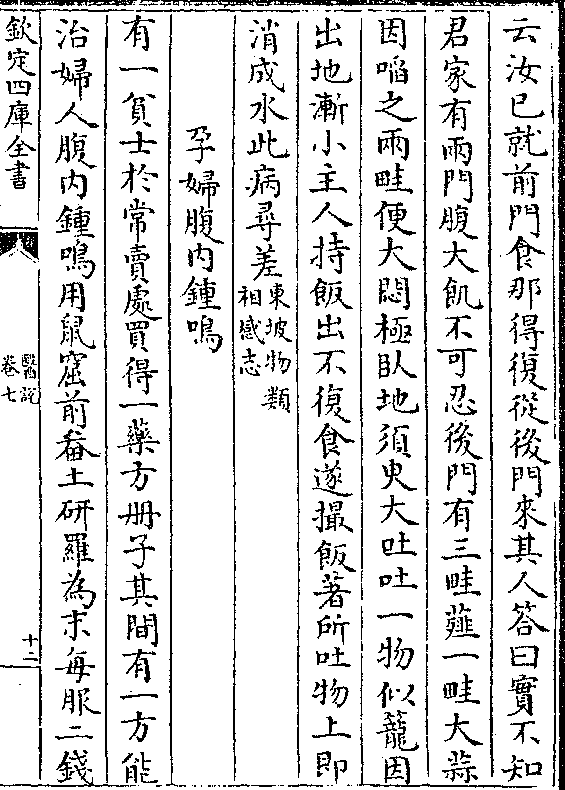 云汝已就前門食那得復從後門來其人答曰實不知
君家有兩門腹大飢不可忍後門有三畦薤一畦大蒜
因啗之兩畦便大悶極臥地須臾大吐吐一物似籠因
出地漸小主人持飯出不復食遂撮飯著所吐物上即
消成水此病尋差東坡物類相感志
孕婦腹内鍾鳴
有一貧士於常賣處買得一藥方册子其間有一方能
治婦人腹内鍾鳴用鼠窟前畚土研羅為末每服二錢
欽定四庫全書
醫説
卷七
十二